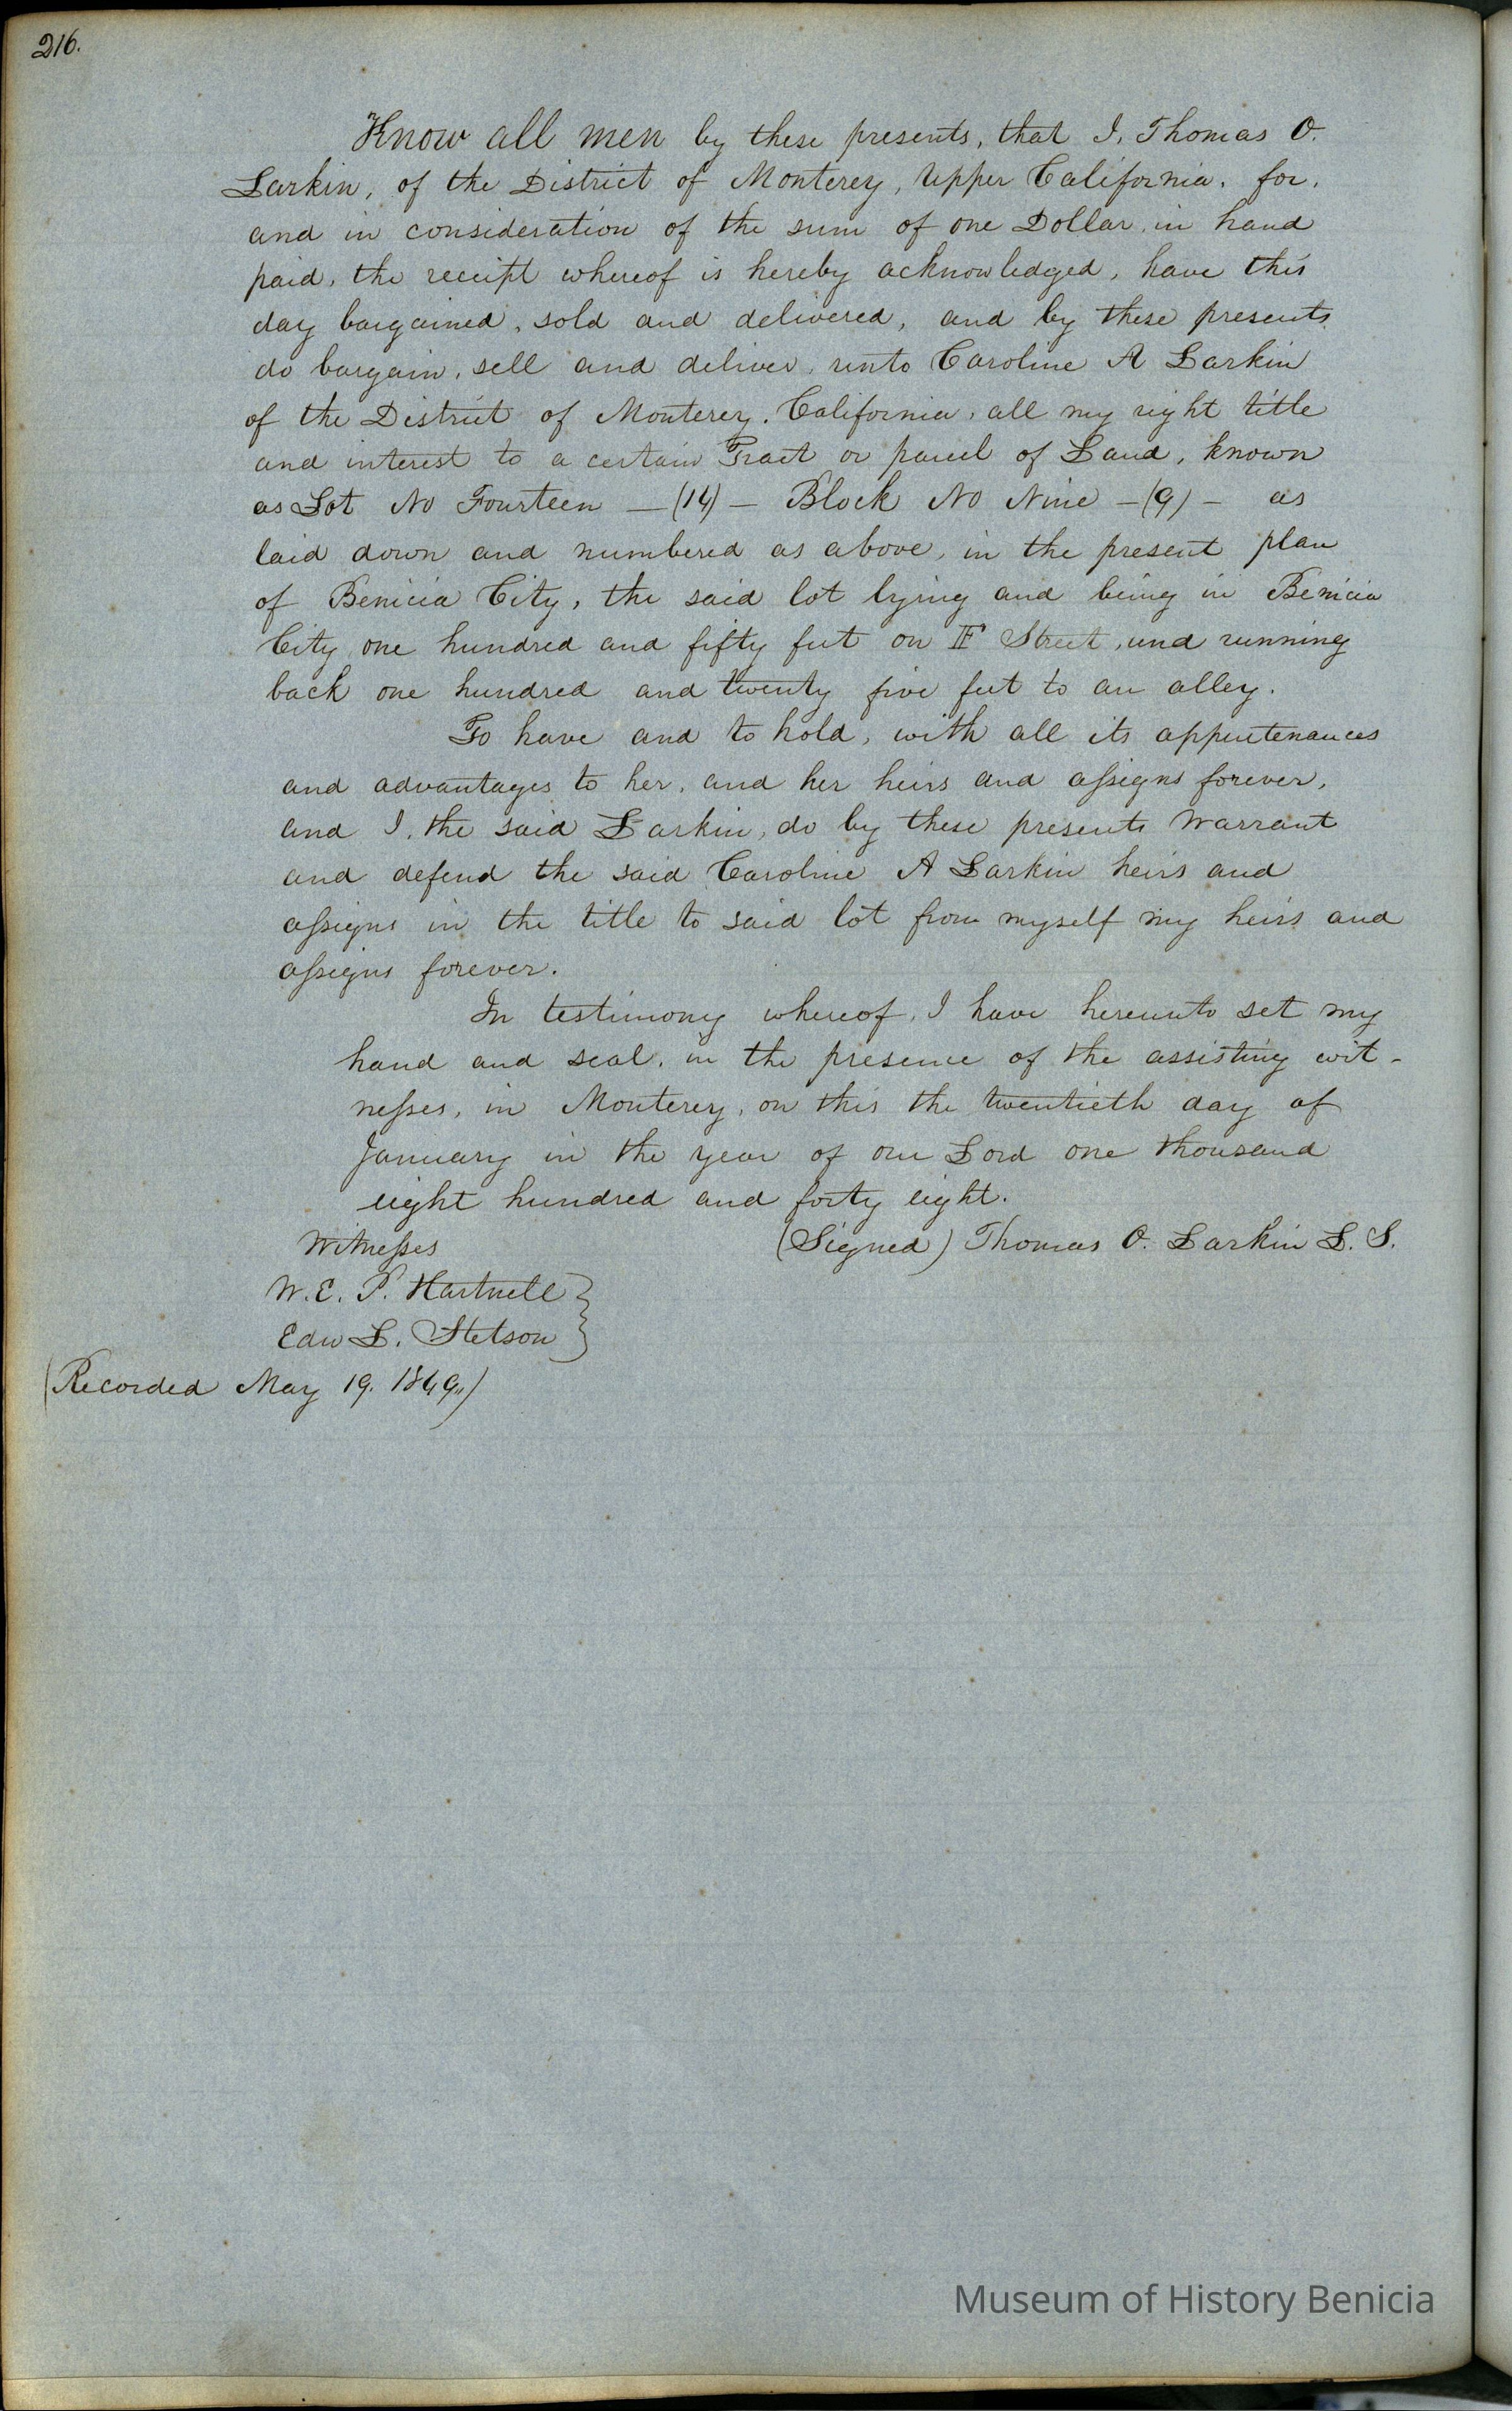 216.
Know all men by these presents, that I, Thomas O.
Larkin, of the District of Monterey, Upper California, for,
and in consideration of the sum of one Dollar, in hand
paid, the receipt whereof is hereby acknowledged, have this
day bargained, sold and delivered, and by these presents
do bargain, sell and deliver, unto Caroline A Larkin
of the District of Monterey, California, all my right title
and interest to a certain Tract or parcel of Land, known
as Lot No Fourteen —(14)— Block No Nine —(9)— as
laid down and numbered as above, in the present plan
of Benicia City, the said lot lying and being in Benicia
City, one hundred and fifty feet on F Street, and running
back one hundred and twenty five feet to an alley.
To have and to hold, with all its appurtenances
and advantages to her, and her heirs and assigns forever,
and I, the said Larkin, do by these presents Warrant
and defend the said Caroline A Larkin heirs and
assigns in the title to said lot from myself my heirs and
assigns forever.
In testimony whereof, I have hereunto set my
hand and seal, in the presence of the assisting wit-
nesses, in Monterey, on this the twentieth day of
January in the year of our Lord one thousand
eight hundred and forty eight.
Witnesses (Signed) Thomas O. Larkin L. S.
W. E. P. Hartnell }
Edw L. Stetson }
(Recorded May 19. 1849.)
Museum of History Benicia